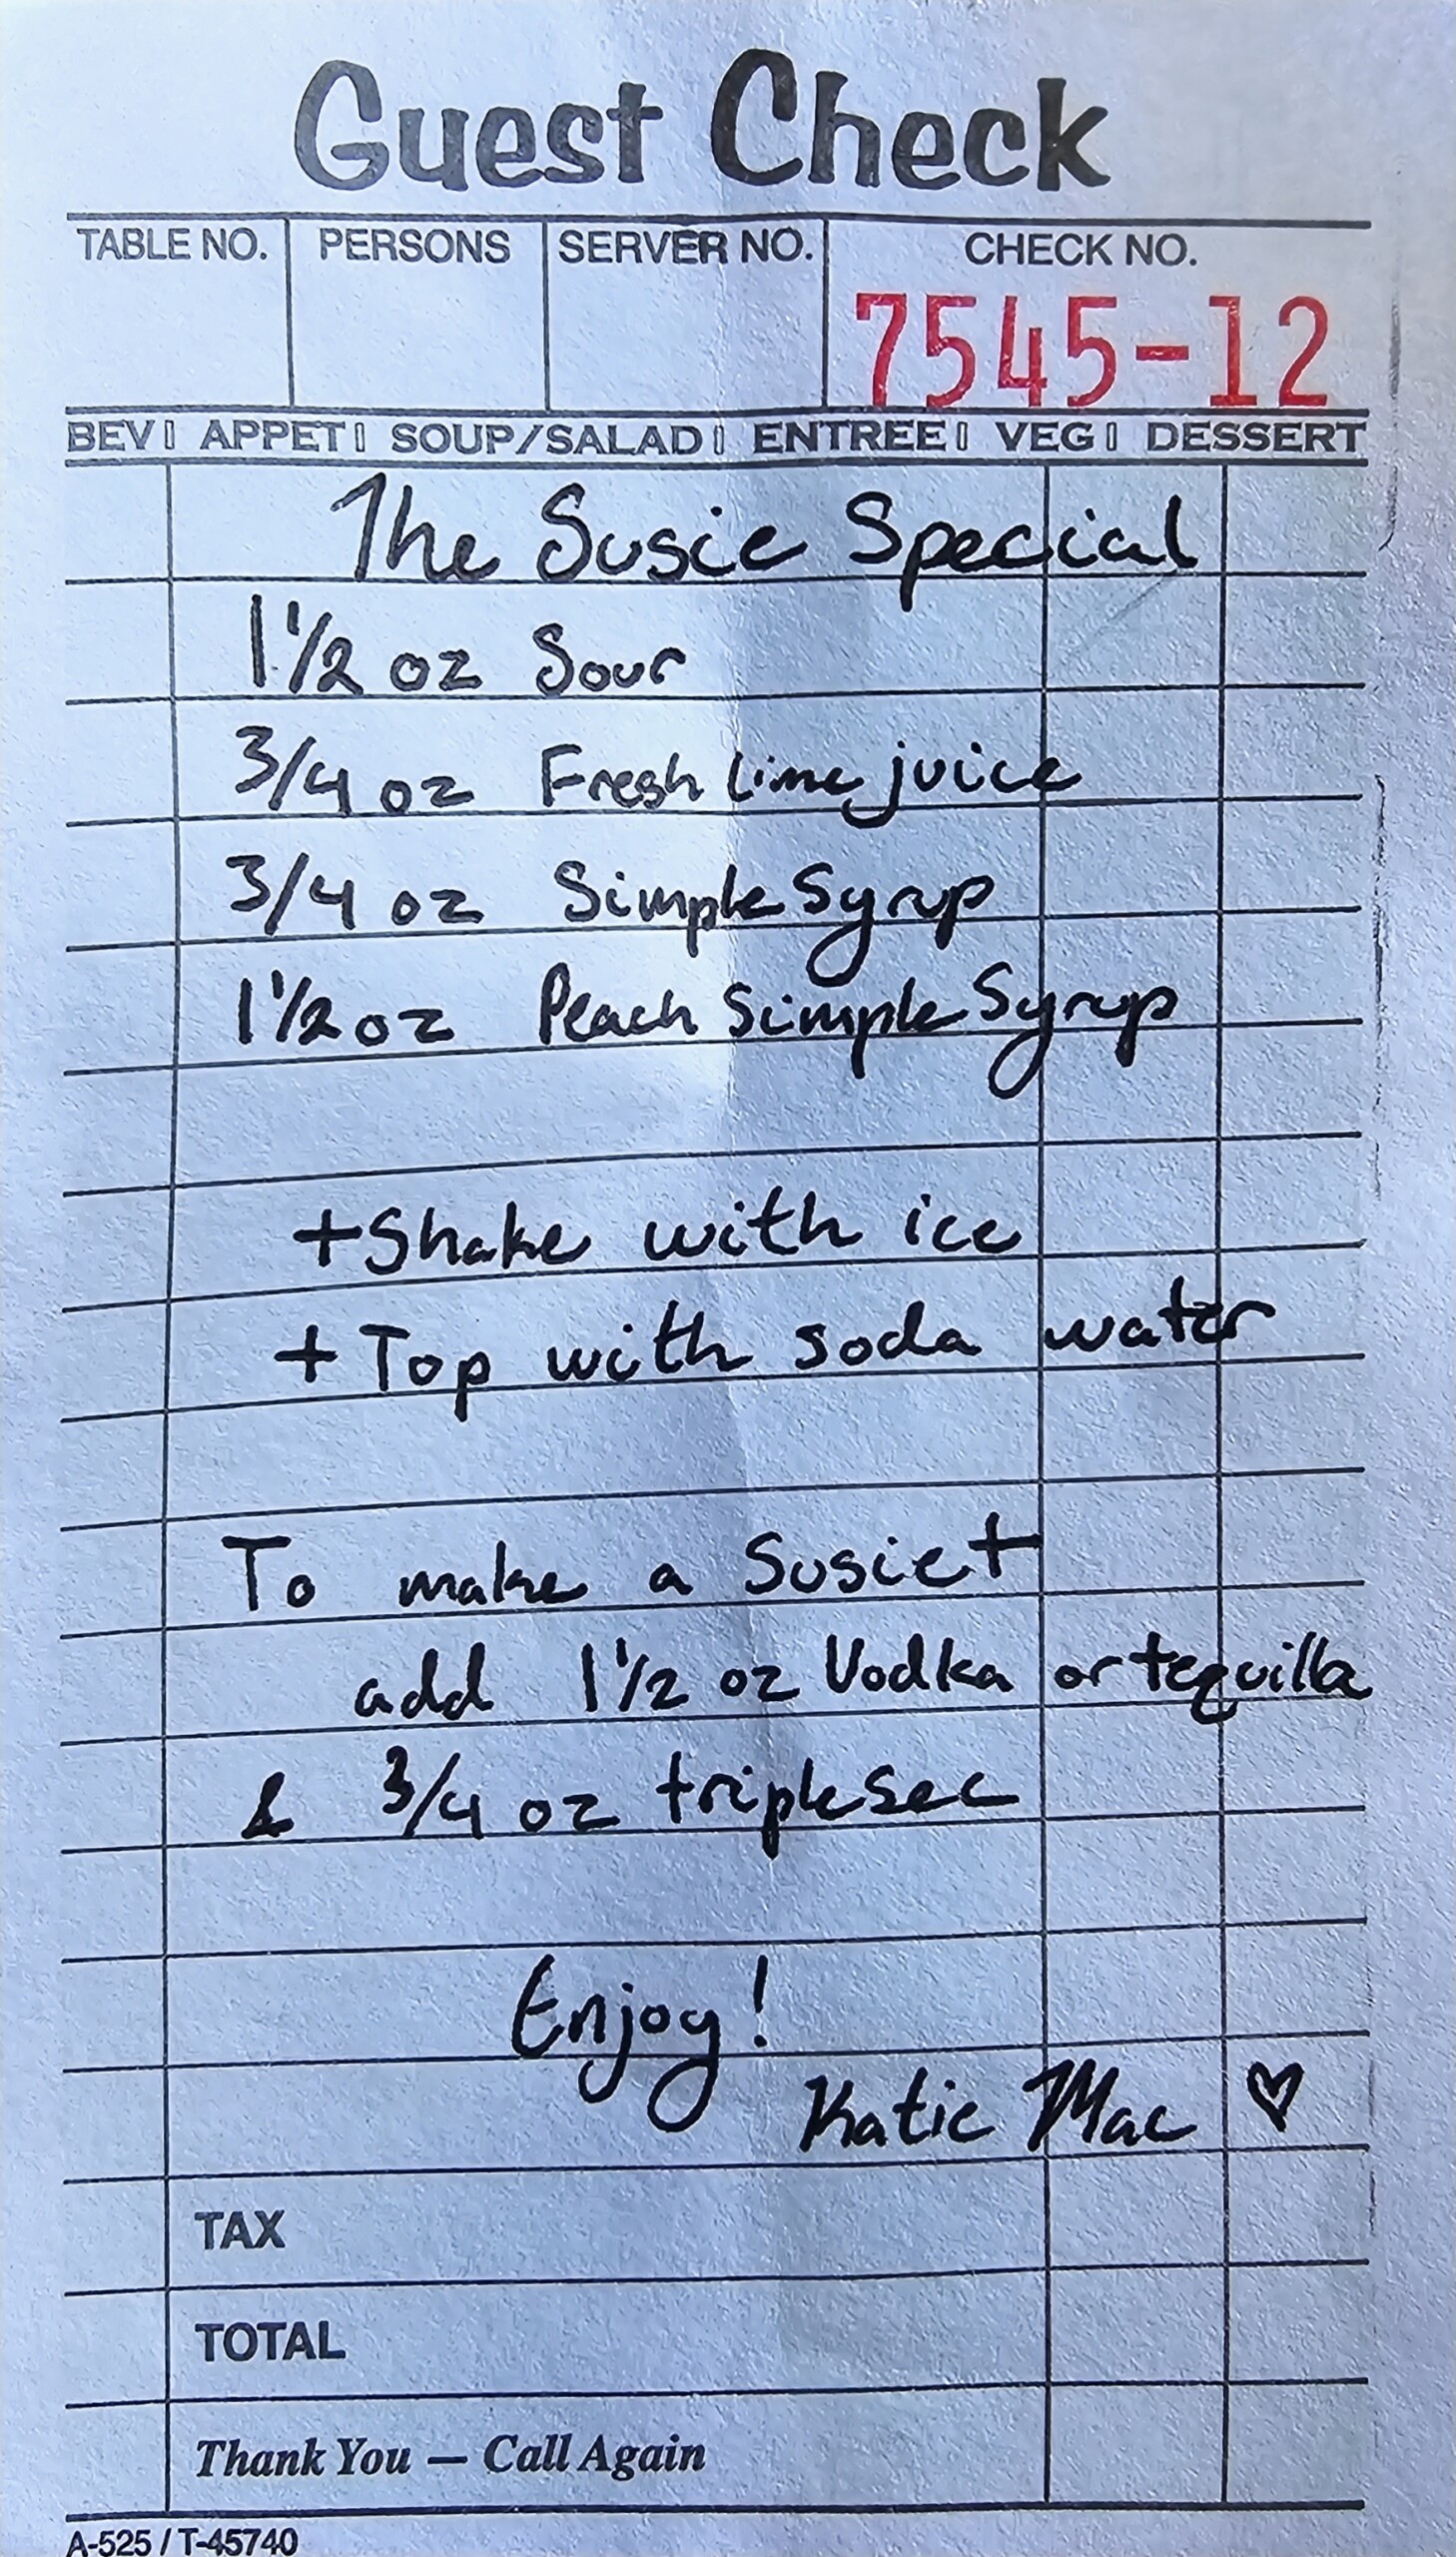 Guest Check
TABLE NO. PERSONS SERVER NO. CHECK NO.
7545-12
BEV APPET SOUP/SALAD ENTREE VEG DESSERT
The Susie Special
1 1/2 oz Sour
3/4 oz Fresh Lime juice
3/4 oz Simple Syrup
1 1/2 oz Peach Simple Syrup
+Shake with ice
+Top with soda water
To make a Susie+
add 1 1/2 oz Vodka or tequilla
& 3/4 oz triple sec
Enjoy!
Katie Mac ♡
TAX
TOTAL
Thank You — Call Again
A-525 / T-45740